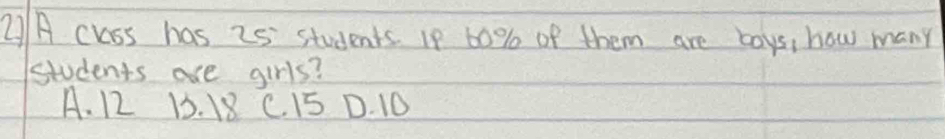 2) A class has 25 students. If 60% of them are boys, how many
students are girls?
A. 12 B. 18 C. 15 D. 10